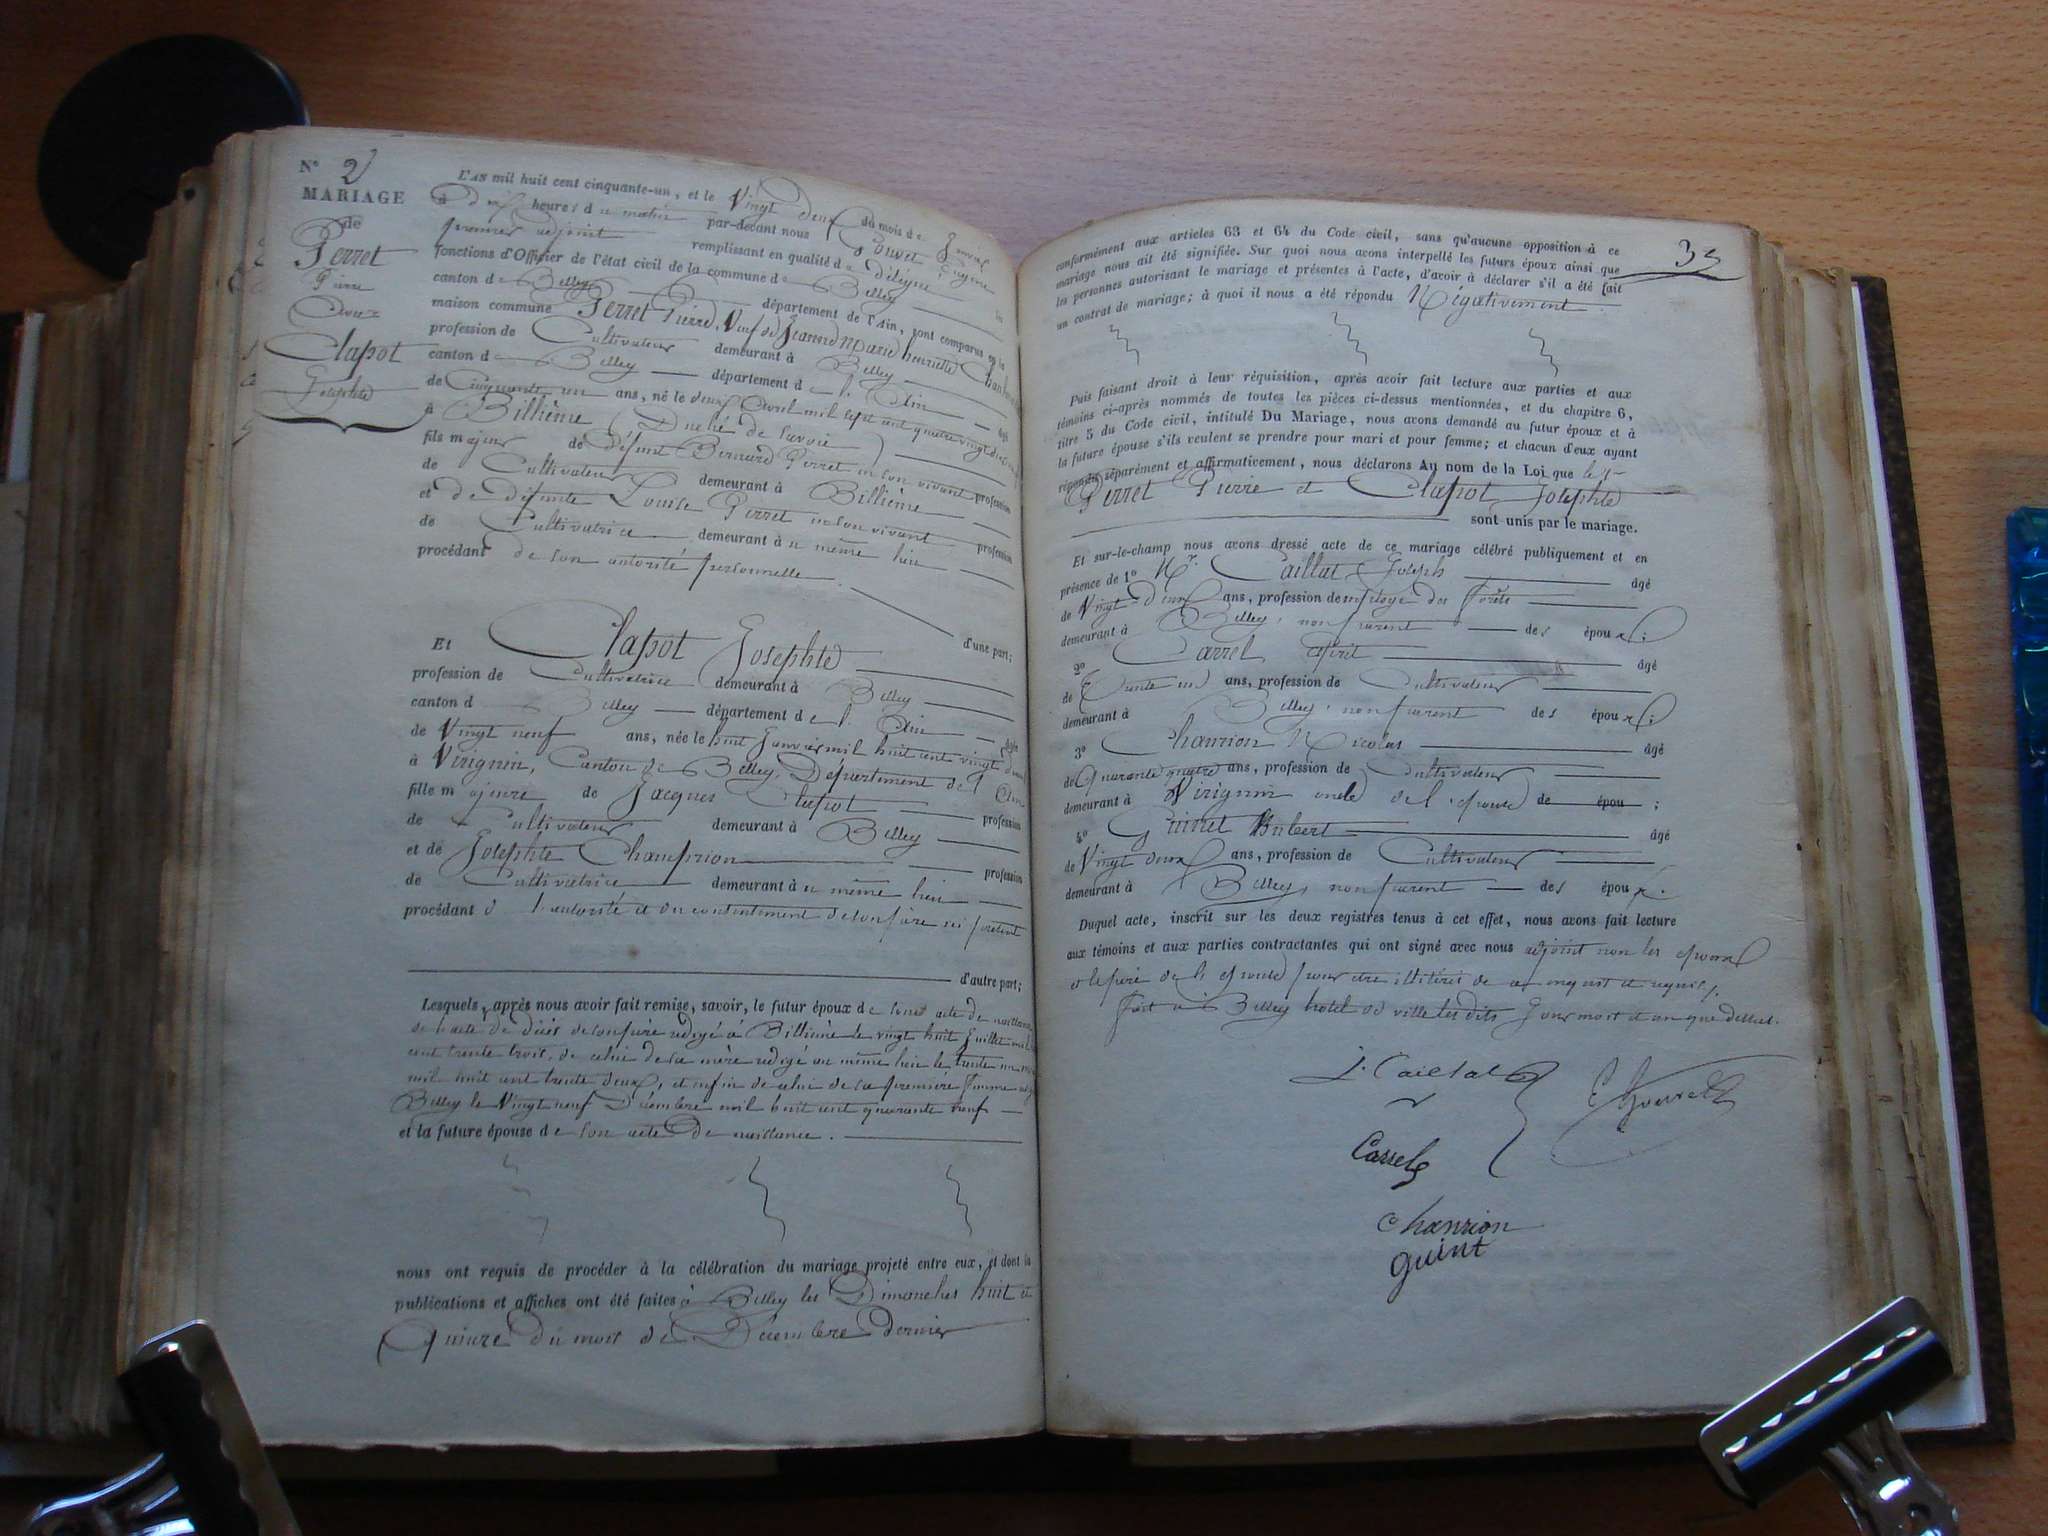 N° 2
MARIAGE
de
Perret
Pierre
Avec
Clapot
Josephte
L'AN mil huit cent cinquante-un, et le Vingt Deux du mois de Janvier
à Dix heures du matin par-devant nous Gouvet Eugène
premier adjoint remplissant en qualité de délégué les
fonctions d'Officier de l'état civil de la commune de Belley
canton de Belley département de l'Ain, sont comparus en la
maison commune Perret Pierre, Veuf de Jeanne Marie henriette
profession de Cultivateur demeurant à Belley
canton de Belley département de l'Ain âgé
de Cinquante un ans, né le deux Avril mil sept cent quatre vingt
à Billième (Duché de Savoie)
fils majeur de défunt Bernard Perret en son vivant profession
de Cultivateur demeurant à Billième
et de défunte Louise Perret en son vivant profession
de Cultivatrice demeurant à u même lieu
procédant de son autorité personnelle.
d'une part;
Et Clapot Josephte
profession de Cultivatrice demeurant à Belley
canton d Belley département de l'Ain âgée
de Vingt neuf ans, née le huit Janvier mil huit cent vingt deux
à Virignin, Canton de Belley, Département de l'Ain
fille majeure de Jacques Clapot profession
de Cultivateur demeurant à Belley
et de Josephte Champrion profession
de Cultivatrice demeurant à u même lieu
procédant d l'autorité et du consentement de son père ici présent
d'autre part;
Lesquels, après nous avoir fait remise, savoir, le futur époux de son acte de naissance
de l'acte de décès de son père rédigé à Billième le vingt huit Juillet mil
cent trente trois, de celui de sa mère rédigé au même lieu le trente un
mil huit cent trente deux, et enfin de celui de sa première femme
Belley le Vingt neuf Décembre mil huit cent quarante neuf
et la future épouse de son acte de naissance.
nous ont requis de procéder à la célébration du mariage projeté entre eux, et dont la
publications et affiches ont été faites à Belley les Dimanches huit et
Quinze du mois de Décembre dernier
33
conformément aux articles 63 et 64 du Code civil, sans qu'aucune opposition à ce
mariage nous ait été signifiée. Sur quoi nous avons interpellé les futurs époux ainsi que
les personnes autorisant le mariage et présentes à l'acte, d'avoir à déclarer s'il a été fait
un contrat de mariage; à quoi il nous a été répondu Négativement.
Puis faisant droit à leur réquisition, après avoir fait lecture aux parties et aux
témoins ci-après nommés de toutes les pièces ci-dessus mentionnées, et du chapitre 6,
titre 5 du Code civil, intitulé Du Mariage, nous avons demandé au futur époux et à
la future épouse s'ils veulent se prendre pour mari et pour femme; et chacun d'eux ayant
répondu séparément et affirmativement, nous déclarons Au nom de la Loi que les
Perret Pierre et Clapot Josephte
sont unis par le mariage.
Et sur-le-champ nous avons dressé acte de ce mariage célébré publiquement et en
présence de 1° Mr. Caillat Joseph âgé
de Vingt-deux ans, profession de employé des Forêts
demeurant à Belley, non parent des époux;
2° Carrel âgé
de Trente un ans, profession de Cultivateur
demeurant à Belley, non parent des époux;
3° Chanrion Nicolas âgé
de Quarante quatre ans, profession de Cultivateur
demeurant à Virignin oncle de l'épouse de épou ;
4° Guinet Hubert âgé
de Vingt deux ans, profession de Cultivateur
demeurant à Belley, non parent des époux.
Duquel acte, inscrit sur les deux registres tenus à cet effet, nous avons fait lecture
aux témoins et aux parties contractantes qui ont signé avec nous adjoint non les époux
et le père de l'épouse pour être illitérés de ce enquis et requis.
Fait à Belley hôtel de ville les dits Jour mois et an que dessus.
J. Caillat
E Gouvet
Carrel
Chanrion
guint